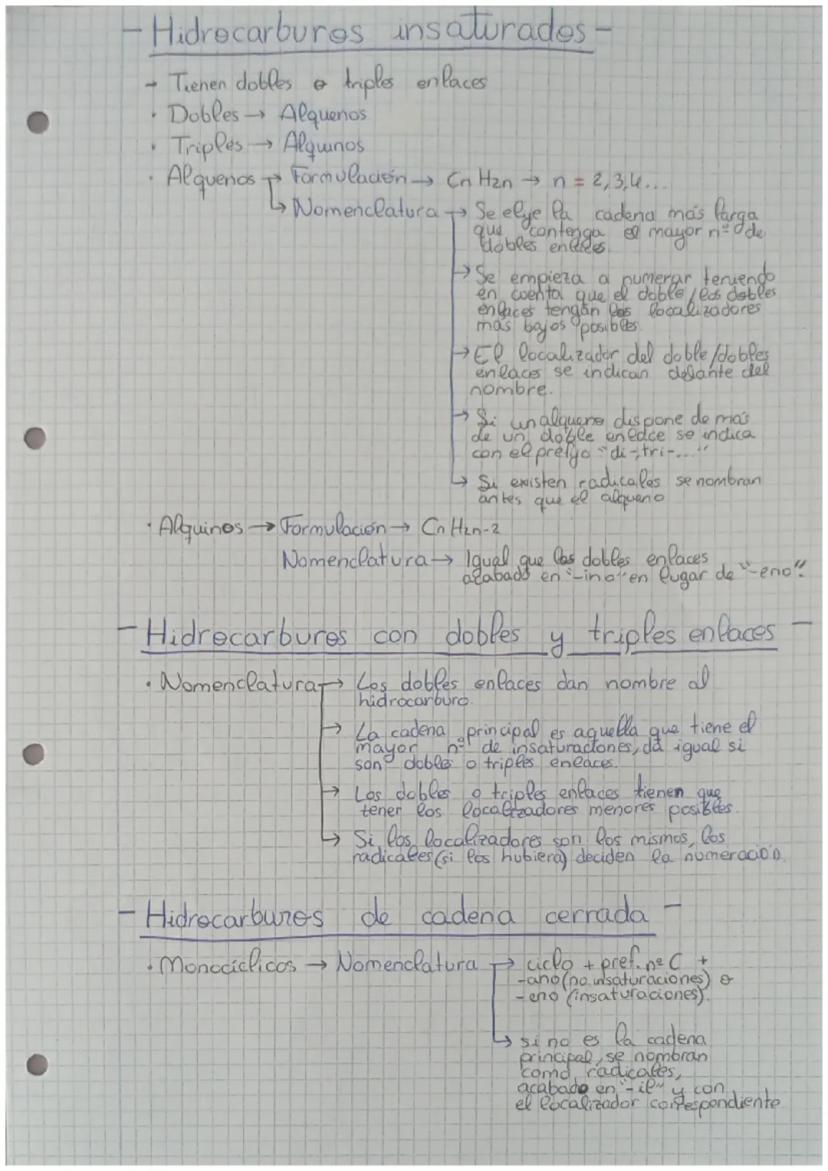 - Hidrocarburos insaturados -
- Tienen dobles o triples enlaces
· Dobles → Alquenos
· Triples → Alquinos
· Alquenos → Formulación → CnH2n → n = 2,3,4...
↳ Nomenclatura → Se elije la cadena más larga
que contenga el mayor nº de
dobles enlaces.
→ Se empieza a numerar teniendo
en cuenta que el doble/los dobles
enlaces tengan los localizadores
más bajos posibles.
→ El localizador del doble/dobles
enlaces se indican delante del
nombre.
→ Si un alqueno dispone de más
de un doble enlace se indica
con el prefijo "di-,tri-..."
↳ Si existen radicales se nombran
antes que el alqueno
· Alquinos → Formulación → CnH2n-2
Nomenclatura → Igual que los dobles enlaces
acabado en "-ino" en lugar de "-eno".
- Hidrocarburos con dobles y triples enlaces -
· Nomenclatura → Los dobles enlaces dan nombre al
hidrocarburo.
→ La cadena principal es aquella que tiene el
mayor nº de insaturaciones, da igual si
son dobles o triples enlaces.
→ Los dobles o triples enlaces tienen que
tener los localizadores menores posibles.
↳ Si los localizadores son los mismos, los
radicales (si los hubiera) deciden la numeración.
- Hidrocarburos de cadena cerrada -
· Monocíclicos → Nomenclatura → ciclo + pref. nº C +
-ano (no insaturaciones) o
-eno (insaturaciones).
↳ si no es la cadena
principal, se nombran
como radicales,
acabado en "-il" y con
el localizador correspondiente